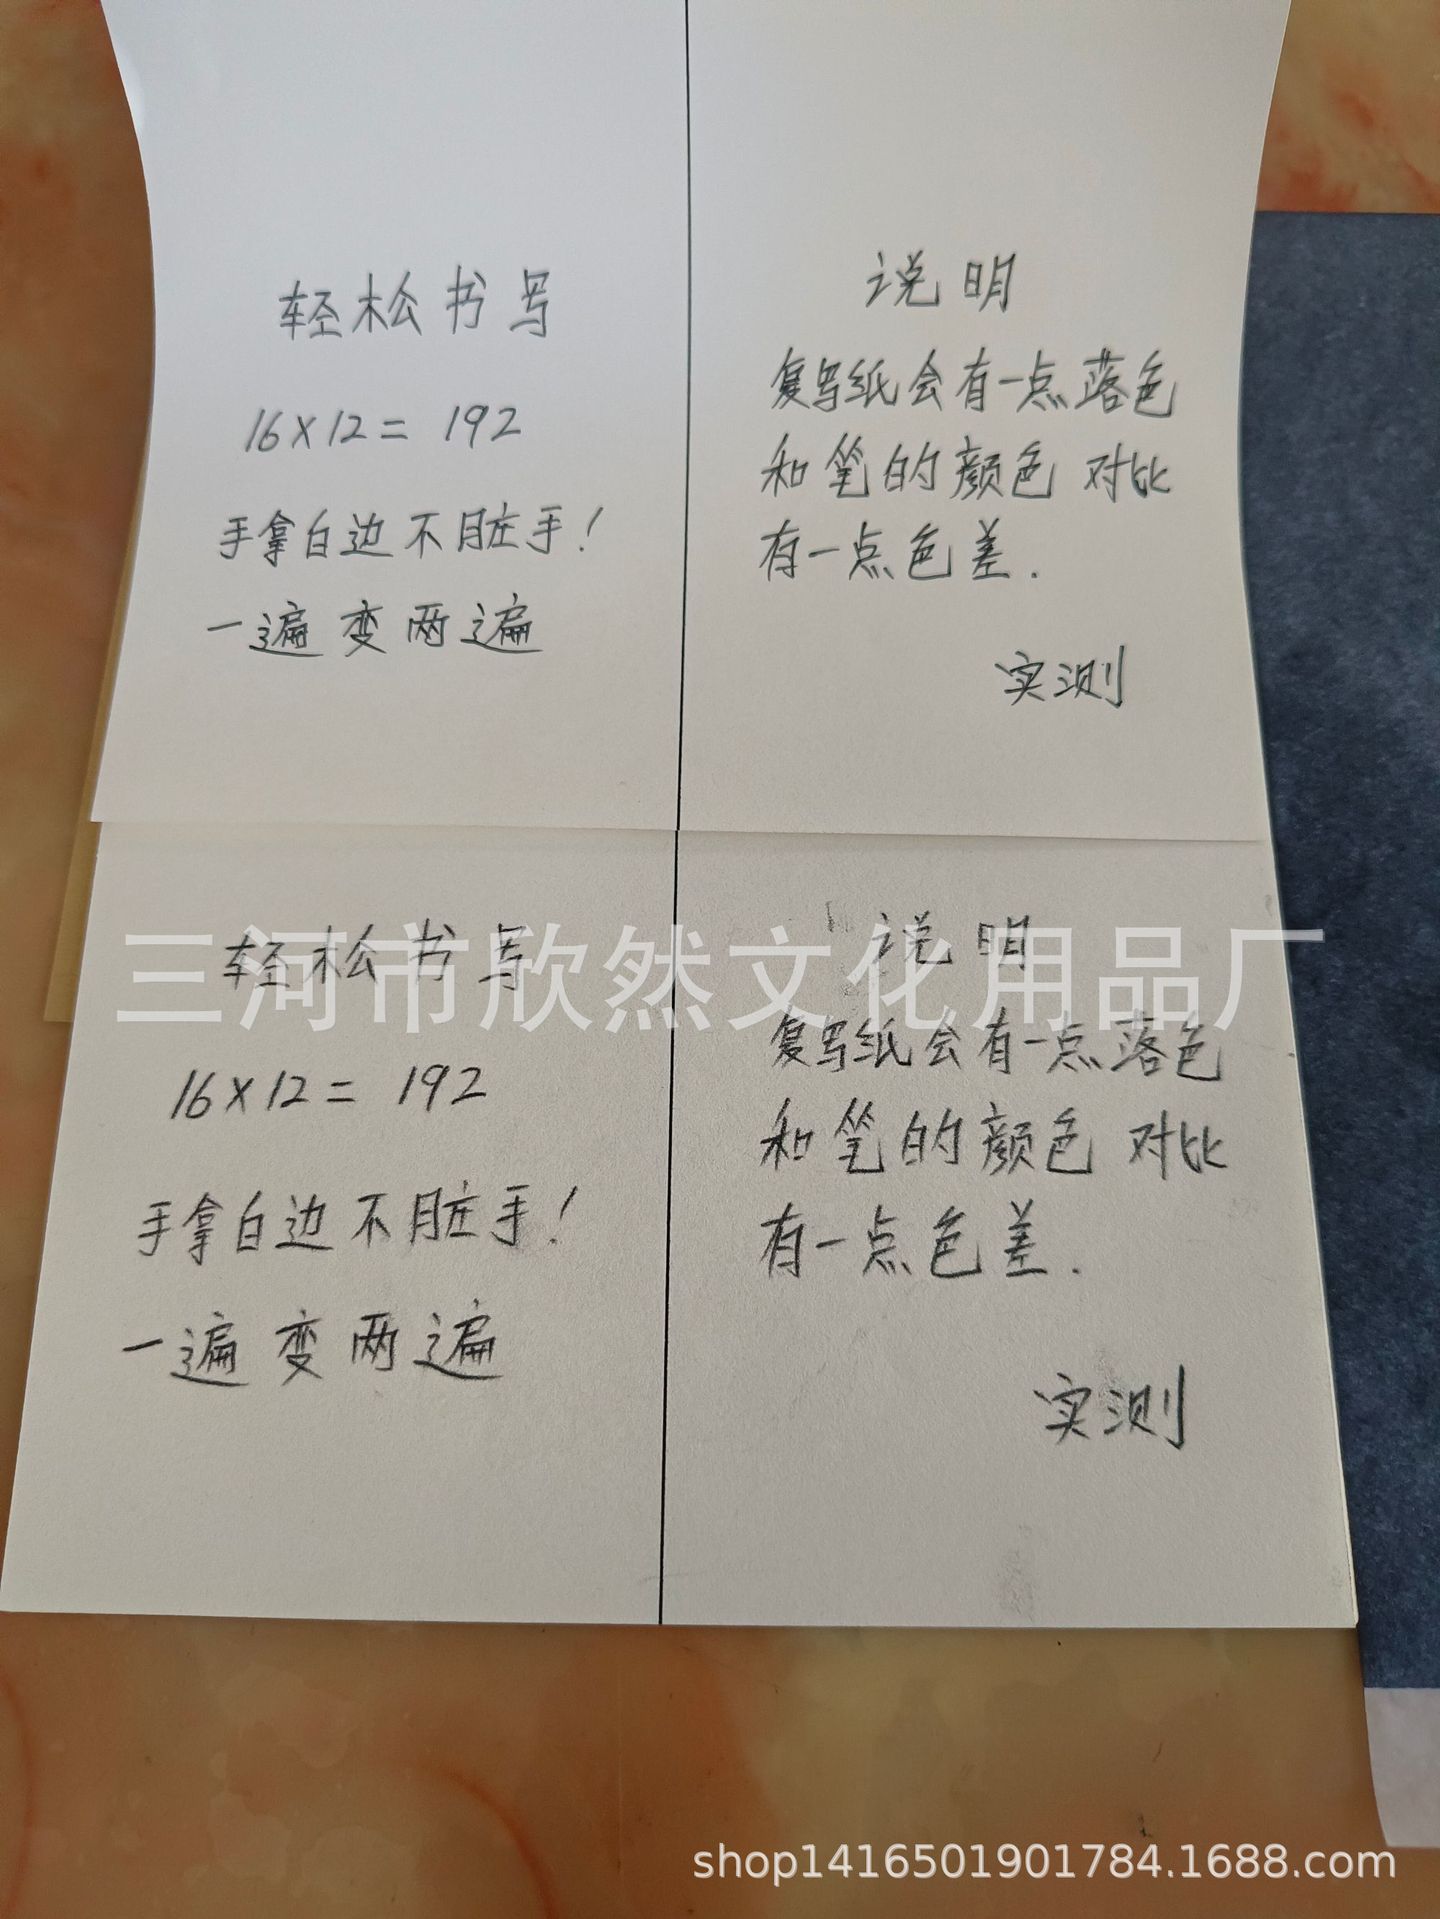 轻松书写
16×12=192
手拿白边不脏手!
一遍变两遍
说明
复写纸会有一点落色
和笔的颜色对比
有一点色差.
实测
三河市欣然文化用品厂
轻松书写
16×12=192
手拿白边不脏手!
一遍变两遍
说明
复写纸会有一点落色
和笔的颜色对比
有一点色差.
实测
shop1416501901784.1688.com